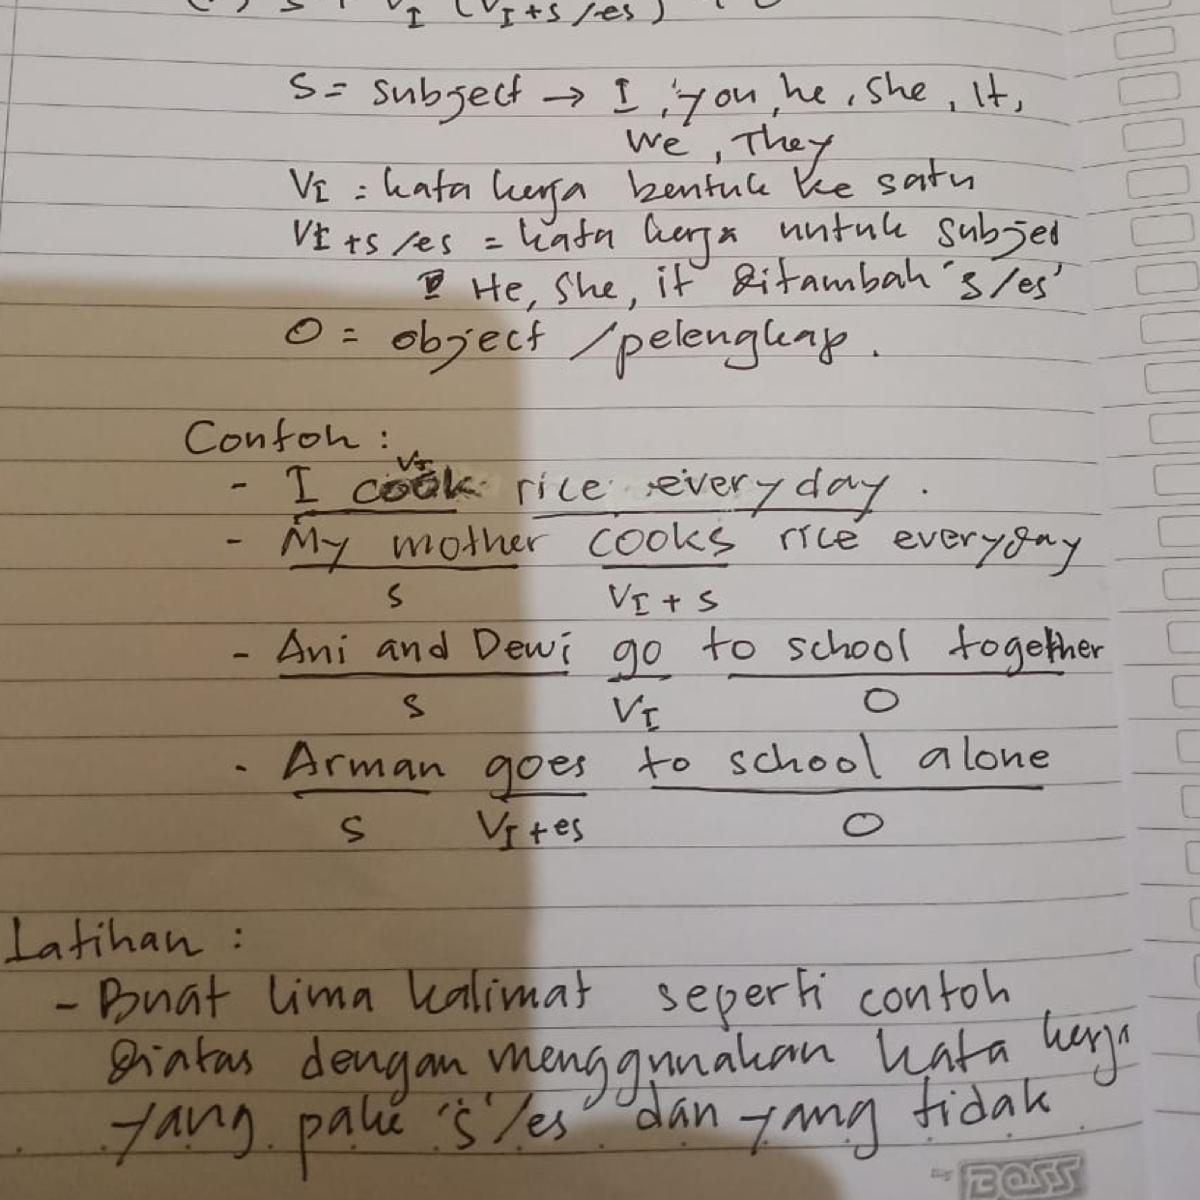 S + VI (VI+s/es) + O
S = subject → I, you, he, she, It,
We, They
VI = kata kerja bentuk ke satu
VI +s/es = kata kerja untuk subjed
He, She, it ditambah 's/es'
O = object / pelengkap.
Contoh :
VI
- I cook rice everyday.
- My mother cooks rice everyday
S VI + s
- Ani and Dewi go to school together
S VI O
- Arman goes to school alone
S VI+es O
Latihan :
- Buat lima kalimat seperti contoh
diatas dengan menggunakan kata kerja
yang pake 's'/es' dan yang tidak
BOSS